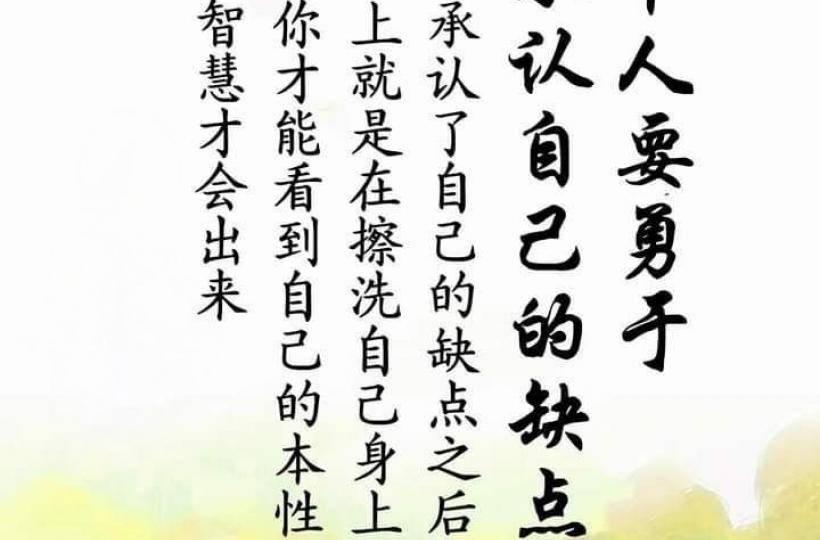 人要勇于
认自己的缺点
承认了自己的缺点之后
上就是在擦洗自己身上
你才能看到自己的本性
智慧才会出来